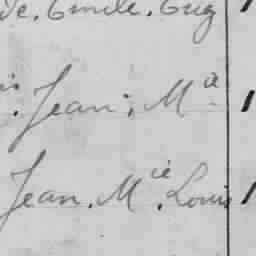 de. Emile. Eug
. Jean. Mª
Jean. Mie. Louis